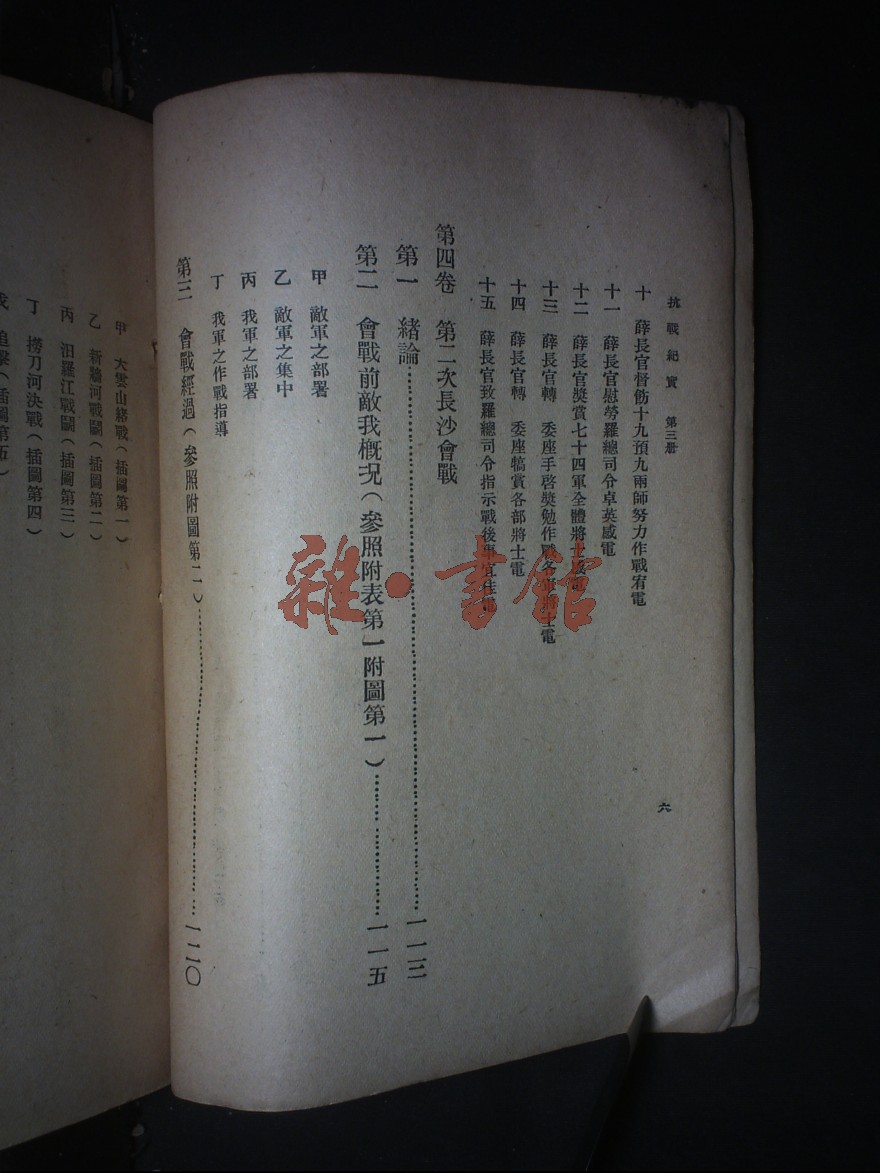 抗戰紀實 第三册
六
十 薛長官督飭十九預九兩師努力作戰宥電
十一 薛長官慰勞羅總司令卓英感電
十二 薛長官獎賞七十四軍全體將士電
十三 薛長官轉 委座手啓獎勉作戰各軍將士電
十四 薛長官轉 委座犒賞各部將士電
十五 薛長官致羅總司令指示戰後事宜佳電
第四卷 第二次長沙會戰
第一 緒論……一一三
第二 會戰前敵我概況(參照附表第一附圖第一)……一一五
甲 敵軍之部署
乙 敵軍之集中
丙 我軍之部署
丁 我軍之作戰指導
第三 會戰經過(參照附圖第二)……一二〇
甲 大雲山緒戰(插圖第一)
乙 新牆河戰鬬(插圖第二)
丙 汨羅江戰鬬(插圖第三)
丁 撈刀河決戰(插圖第四)
戊 追擊(插圖第五)
雜·書館